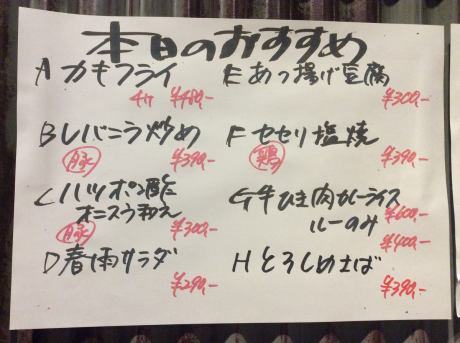 本日のおすすめ
A カキフライ
4ヶ ¥480-
B レバニラ炒め
豚 ¥390-
C ハツポン酢
オニスラ和え
豚 ¥300-
D 春雨サラダ
¥290-
E あつ揚げ豆腐
¥300-
F セセリ塩焼
鶏 ¥390-
G 牛ひき肉カレーライス
¥600-
ルーのみ
¥400-
H とろしめさば
¥390-